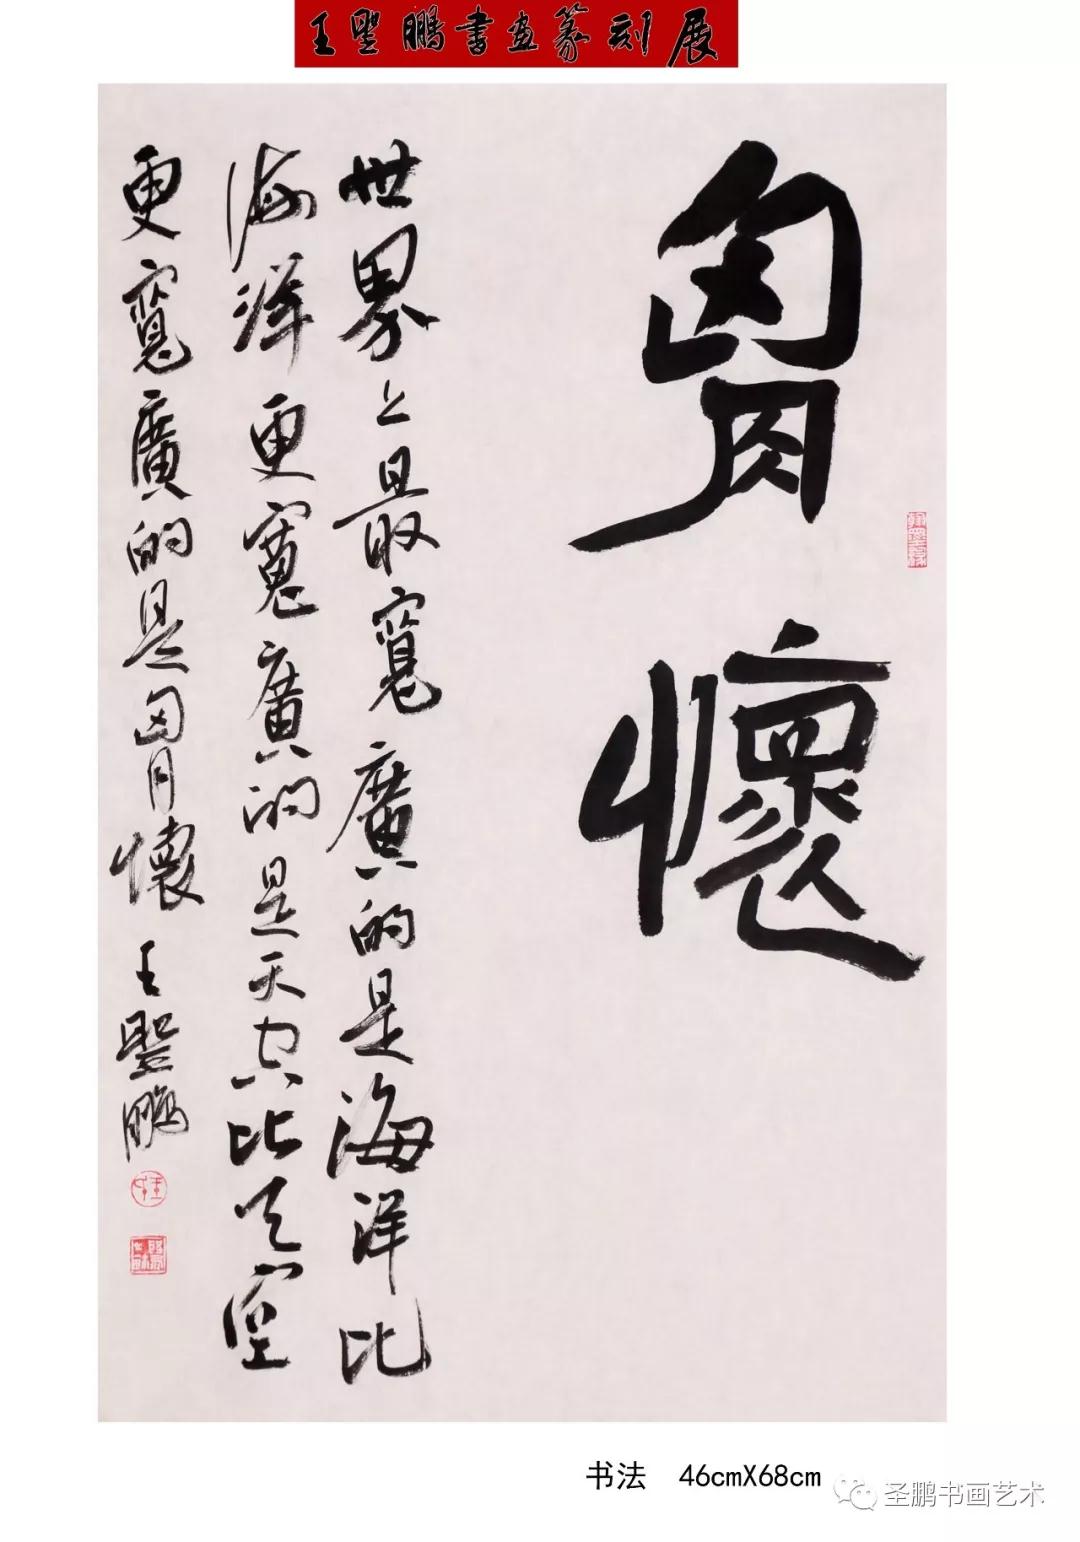 王聖鵬書画篆刻展
胷懷
世界上最寬廣的是海洋比
海洋更寬廣的是天空比天空
更寬廣的是胷懷 王聖鵬
书法 46cmX68cm
圣鹏书画艺术